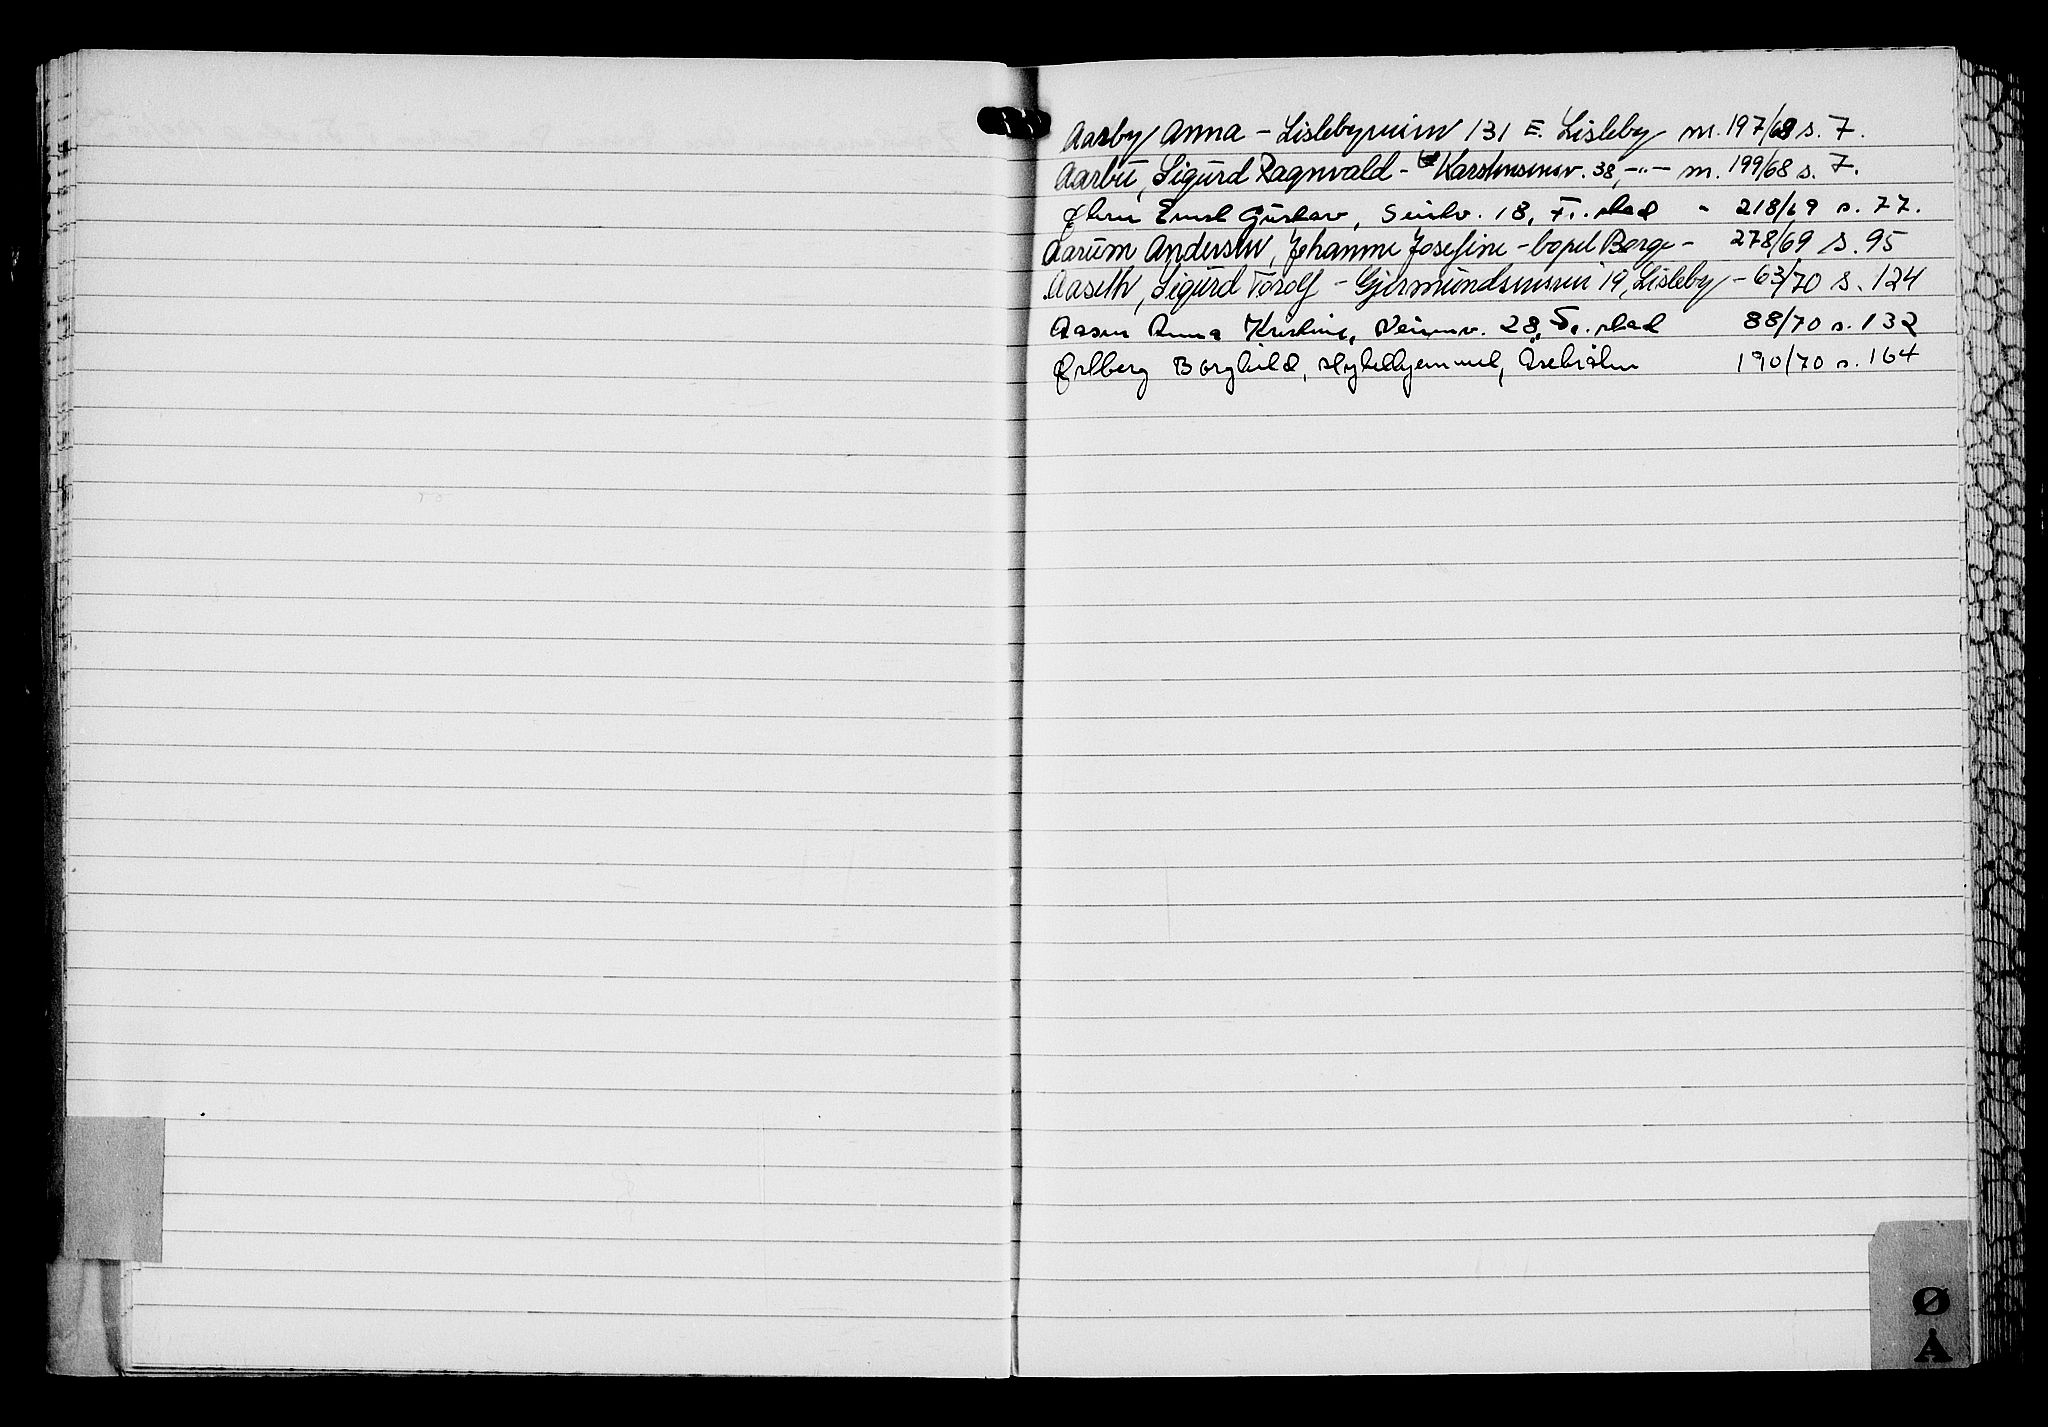 Aasby Anna - Lislebyveien 131 E. Lisleby m. 197/68 s. 7.
Aarbu, Sigurd Ragnvald - Karstensensv. 38, -"- m. 199/68 s. 7.
Ernst Gustav, 18, Fr.stad - 218/69 s. 77.
Aarum Andersen, Johanne Josefine - bopel Borge - 278/69 s. 95
Aaseth, Sigurd Torolf - Gjermundsensvei 19, Lisleby - 63/70 s. 124
Aasen Anna Kristine, 28, Fr.stad 88/70 s. 132
Borghild, 190/70 s. 164
Ø
Å